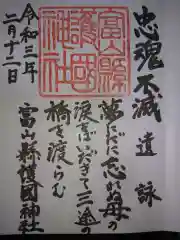 忠魂不滅
遺詠
夢にだに忘れぬ母の
涙ばいだきて三途の
橋を渡らむ
富山縣護國神社
富山縣
護國
神社
令和三年
二月十二日